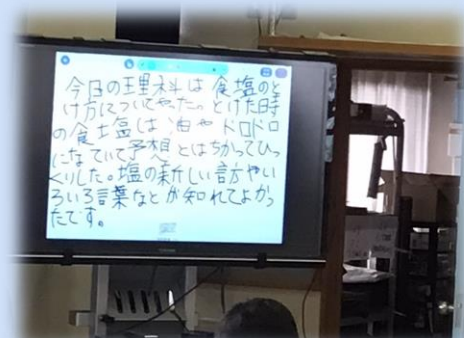 今日の理科は食塩のと
け方についてやった。とけた時
の食塩は油やドロドロ
になていて予想とはちがってひっ
くりした。塩の新しい言方やい
ろいろ言葉などが知れてよかっ
たです。